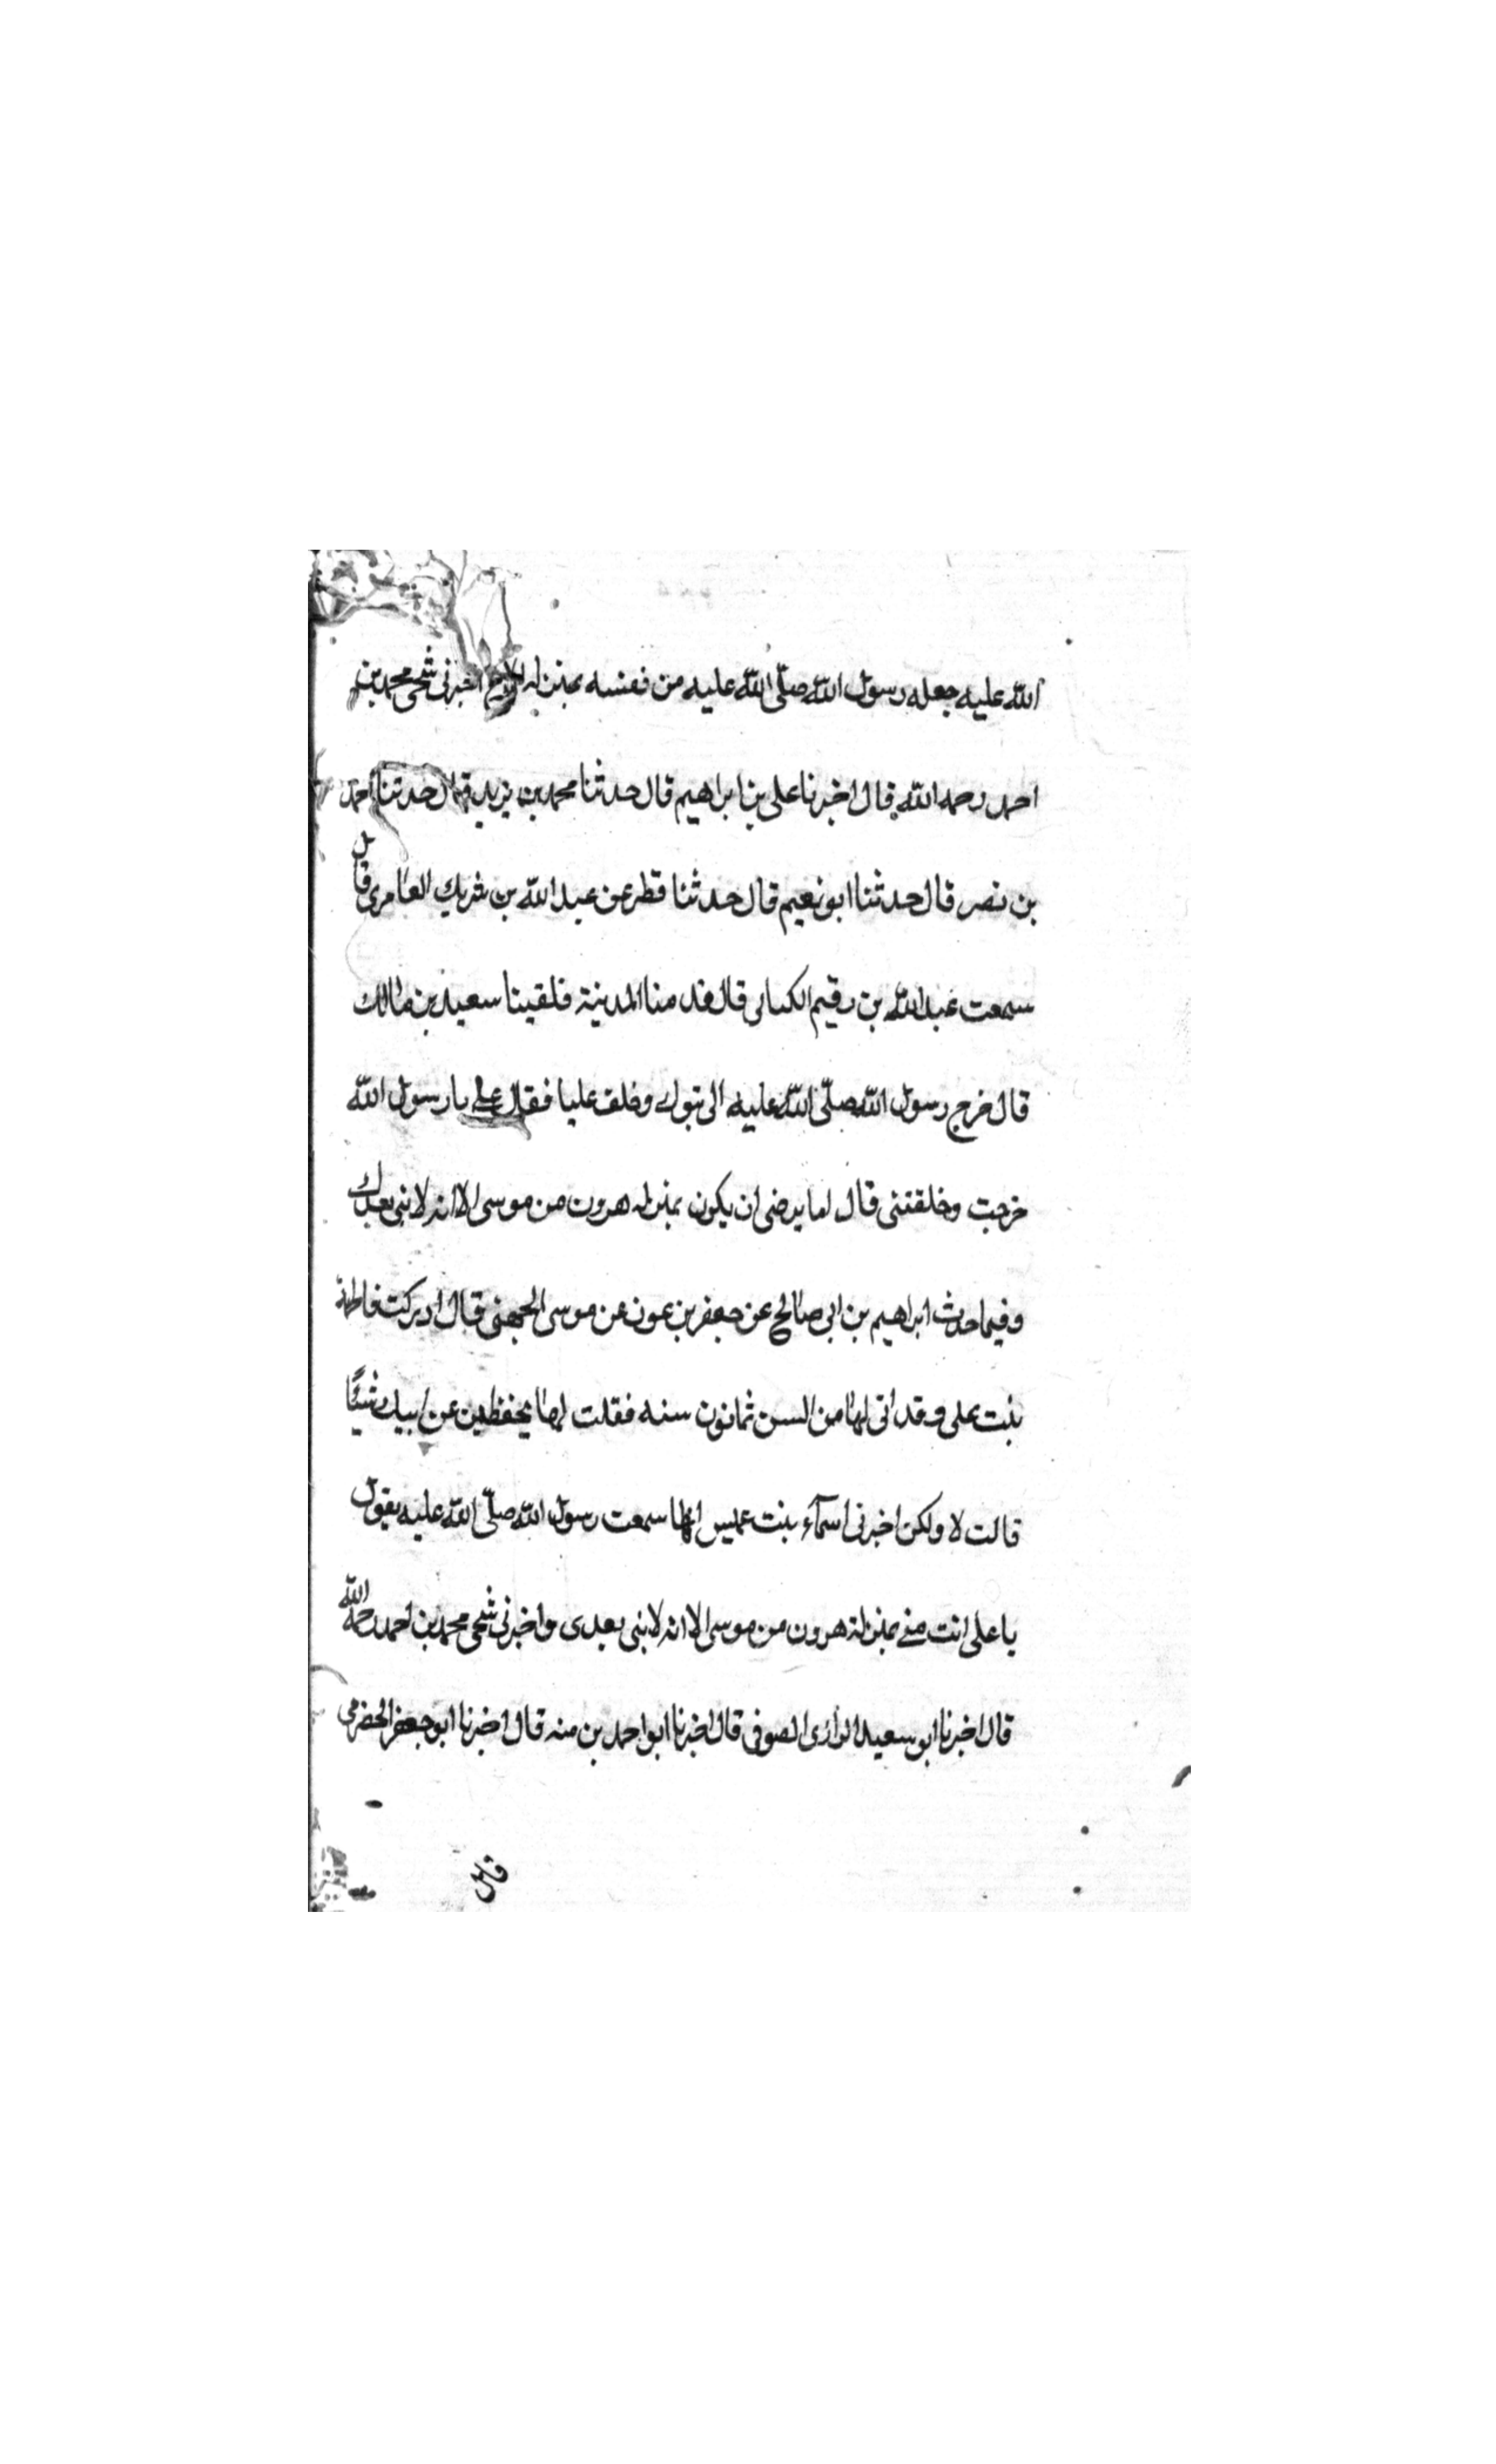 الله عليه جعله رسول الله صلّى الله عليه من نفسه بمنزله اخبرنى شيخى محمد بن
احمد رحمه الله قال اخبرنا على بن ابراهيم قال حدثنا محمد بن يزيد قال حدثنا احمد
بن نصر قال حدثنا ابو نعيم قال حدثنا قطر عن عبد الله بن شريك العامرى قال
سمعت عبد الله بن رقيم الكنانى قال قدمنا المدينة فلقينا سعيد بن مالك
قال خرج رسول الله صلّى الله عليه الى تبوك وخلف عليا فقال على يا رسول الله
خرجت وخلفتنى قال اما يرضى ان يكون بمنزله هرون من موسى الا انه لا نبى بعدك
وفيما حدث ابراهيم بن ابى صالح عن جعفر بن عون عن موسى الجهنى قال ادركت فاطمة
بنت على وقد اتى لها من السن ثمانون سنه فقلت لها يحفظين عن ابيك شيئًا
قالت لا ولكن اخبرنى اسمآء بنت عميس انها سمعت رسول الله صلّى الله عليه يقول
يا على انت منى بمنزلة هرون من موسى الا انه لا نبى بعدى واخبرنى شيخى محمد بن احمد رحمه الله
قال اخبرنا ابو سعيد الرازى الصوفى قال اخبرنا ابو احمد بن منه قال اخبرنا ابو جعفر الحضرمى
قال